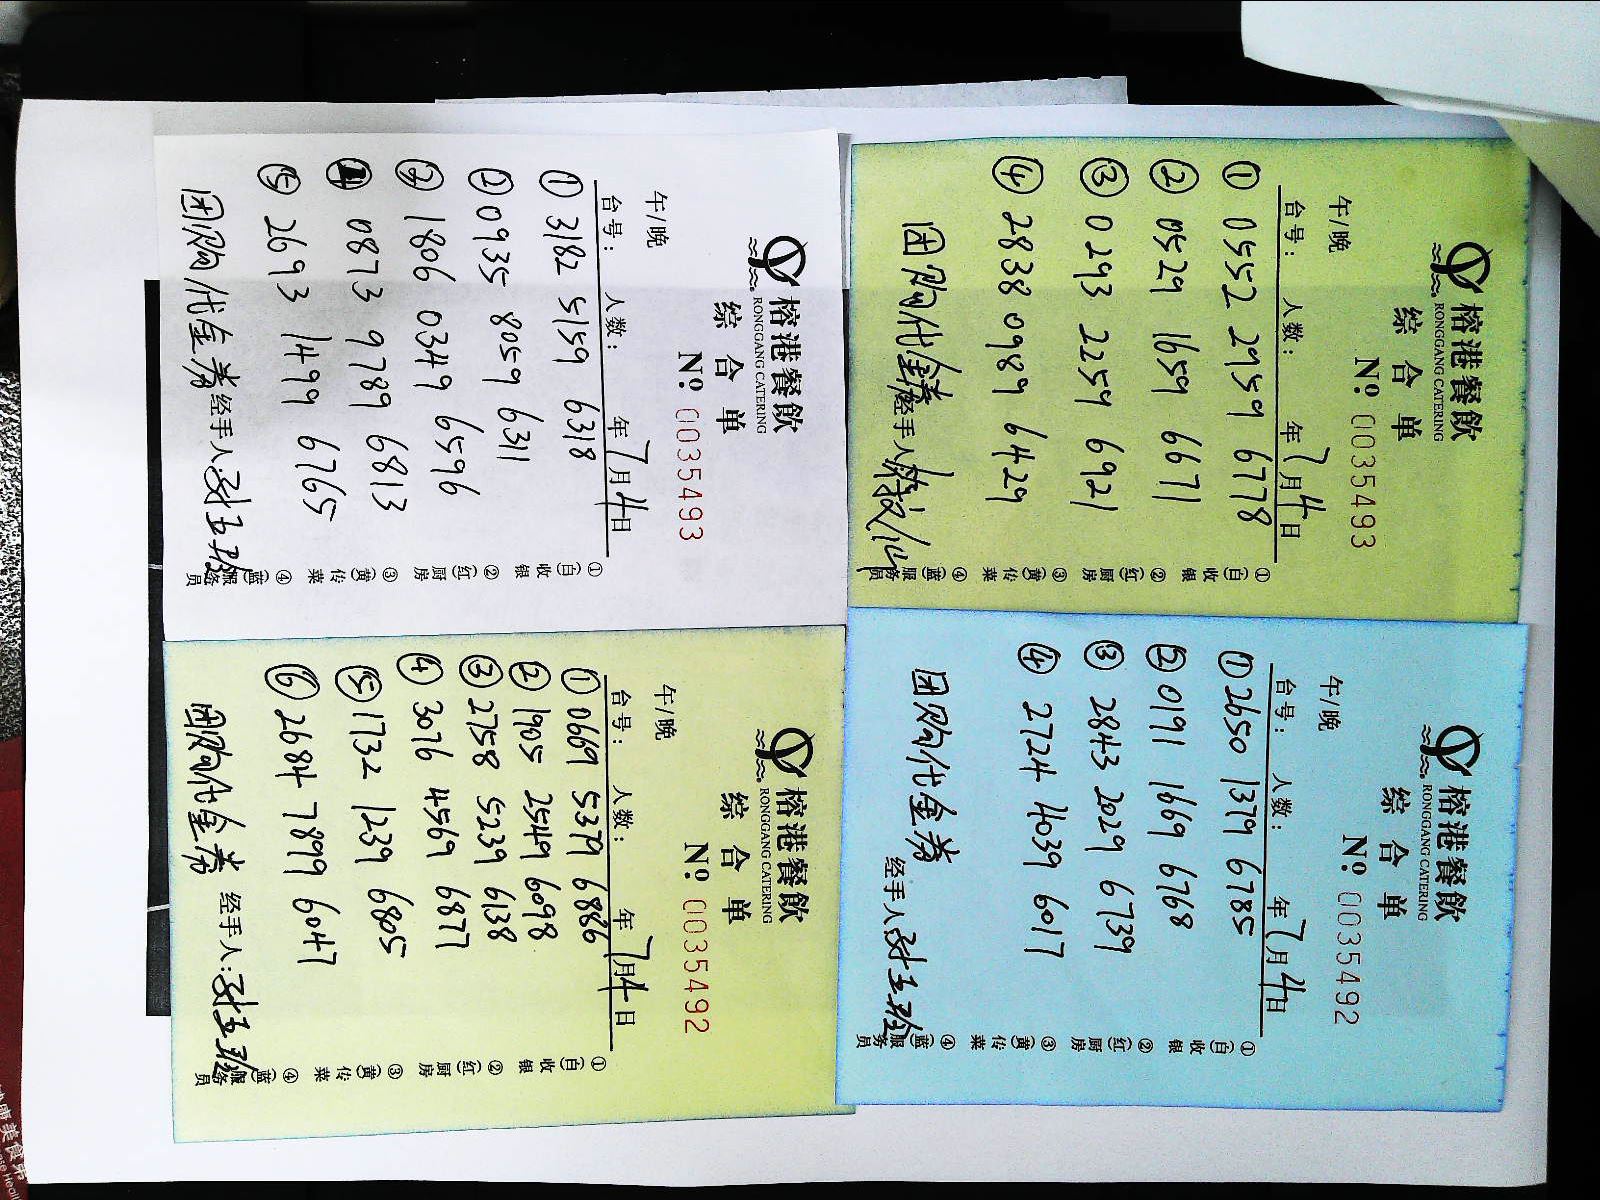 榕港餐飲
RONGGANG CATERING
综合单
午/晚
№ 0035493
台号： 人数： 年7月4日
① 3182 5159 6318
② 0935 8059 6311
③ 1806 0349 6596
④ 0873 9789 6813
⑤ 2693 1499 6765
团购代金券 经手人
①(白)收银 ②(红)厨房 ③(黄)传菜 ④(蓝)服务员
榕港餐飲
RONGGANG CATERING
综合单
午/晚
№ 0035493
台号： 人数： 年7月4日
① 0552 2959 6778
② 0529 1659 6671
③ 0293 2259 6921
④ 2838 0989 6429
团购代金券 经手人
①(白)收银 ②(红)厨房 ③(黄)传菜 ④(蓝)服务员
榕港餐飲
RONGGANG CATERING
综合单
午/晚
№ 0035492
台号： 人数： 年7月4日
① 0669 5379 6886
② 1905 2549 6098
③ 2758 5239 6138
④ 3076 4569 6877
⑤ 1732 1239 6805
⑥ 2684 7899 6047
团购代金券 经手人：
①(白)收银 ②(红)厨房 ③(黄)传菜 ④(蓝)服务员
榕港餐飲
RONGGANG CATERING
综合单
午/晚
№ 0035492
台号： 人数： 年7月4日
① 2650 1379 6785
② 0191 1669 6768
③ 2843 2029 6739
④ 2724 4039 6017
团购代金券
经手人
①(白)收银 ②(红)厨房 ③(黄)传菜 ④(蓝)服务员